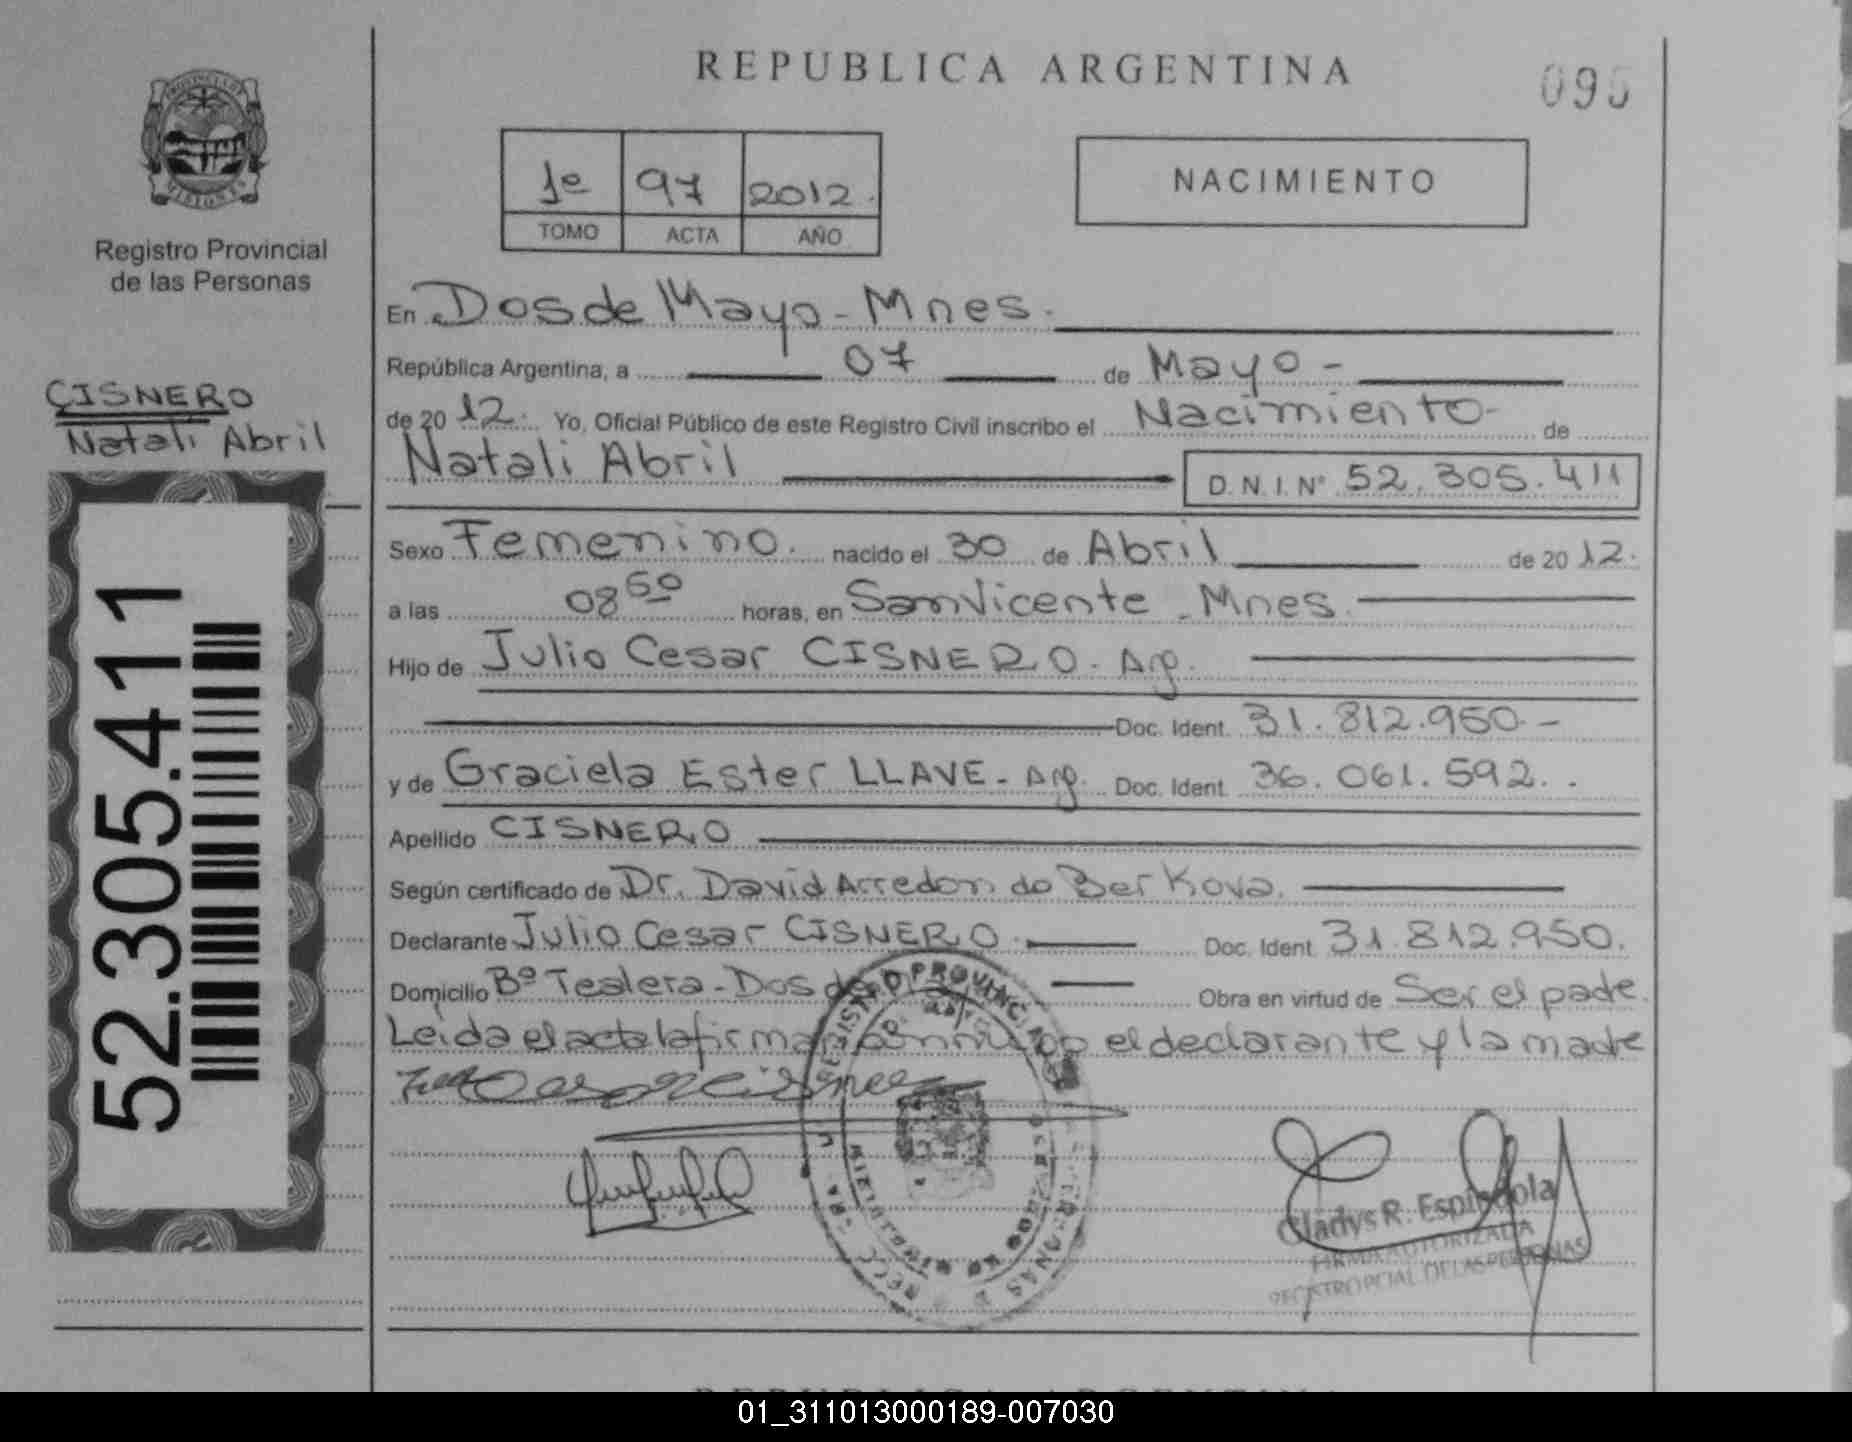 REPUBLICA ARGENTINA
PROVINCIA DE
MISIONES
Registro Provincial
de las Personas
1º 97 2012.
TOMO ACTA AÑO
NACIMIENTO
CISNERO
Natali Abril
52.305.411
En Dos de Mayo - Mnes.
República Argentina, a 07 de Mayo -
de 2012. Yo, Oficial Público de este Registro Civil inscribo el Nacimiento - de
Natali Abril D. N. I. Nº 52.305.411
Sexo Femenino. nacido el 30 de Abril de 2012.
a las 08 50 horas, en San Vicente - Mnes.
Hijo de Julio Cesar CISNERO. Arg.
Doc. Ident. 31.812.950 -
y de Graciela Ester LLAVE - Arg. Doc. Ident. 36.061.592. .
Apellido CISNERO
Según certificado de Dr. David Arredondo Berkova.
Declarante Julio Cesar CISNERO. Doc. Ident. 31.812.950.
Domicilio Bº Tealera - Dos de Obra en virtud de Ser el padre.
Leida el acta la firman el declarante y la madre
Gladys R. Espindola
FIRMA AUTORIZADA
REGISTRO PCIAL. DE LAS PERSONAS
REPUBLICA ARGENTINA
01_311013000189-007030